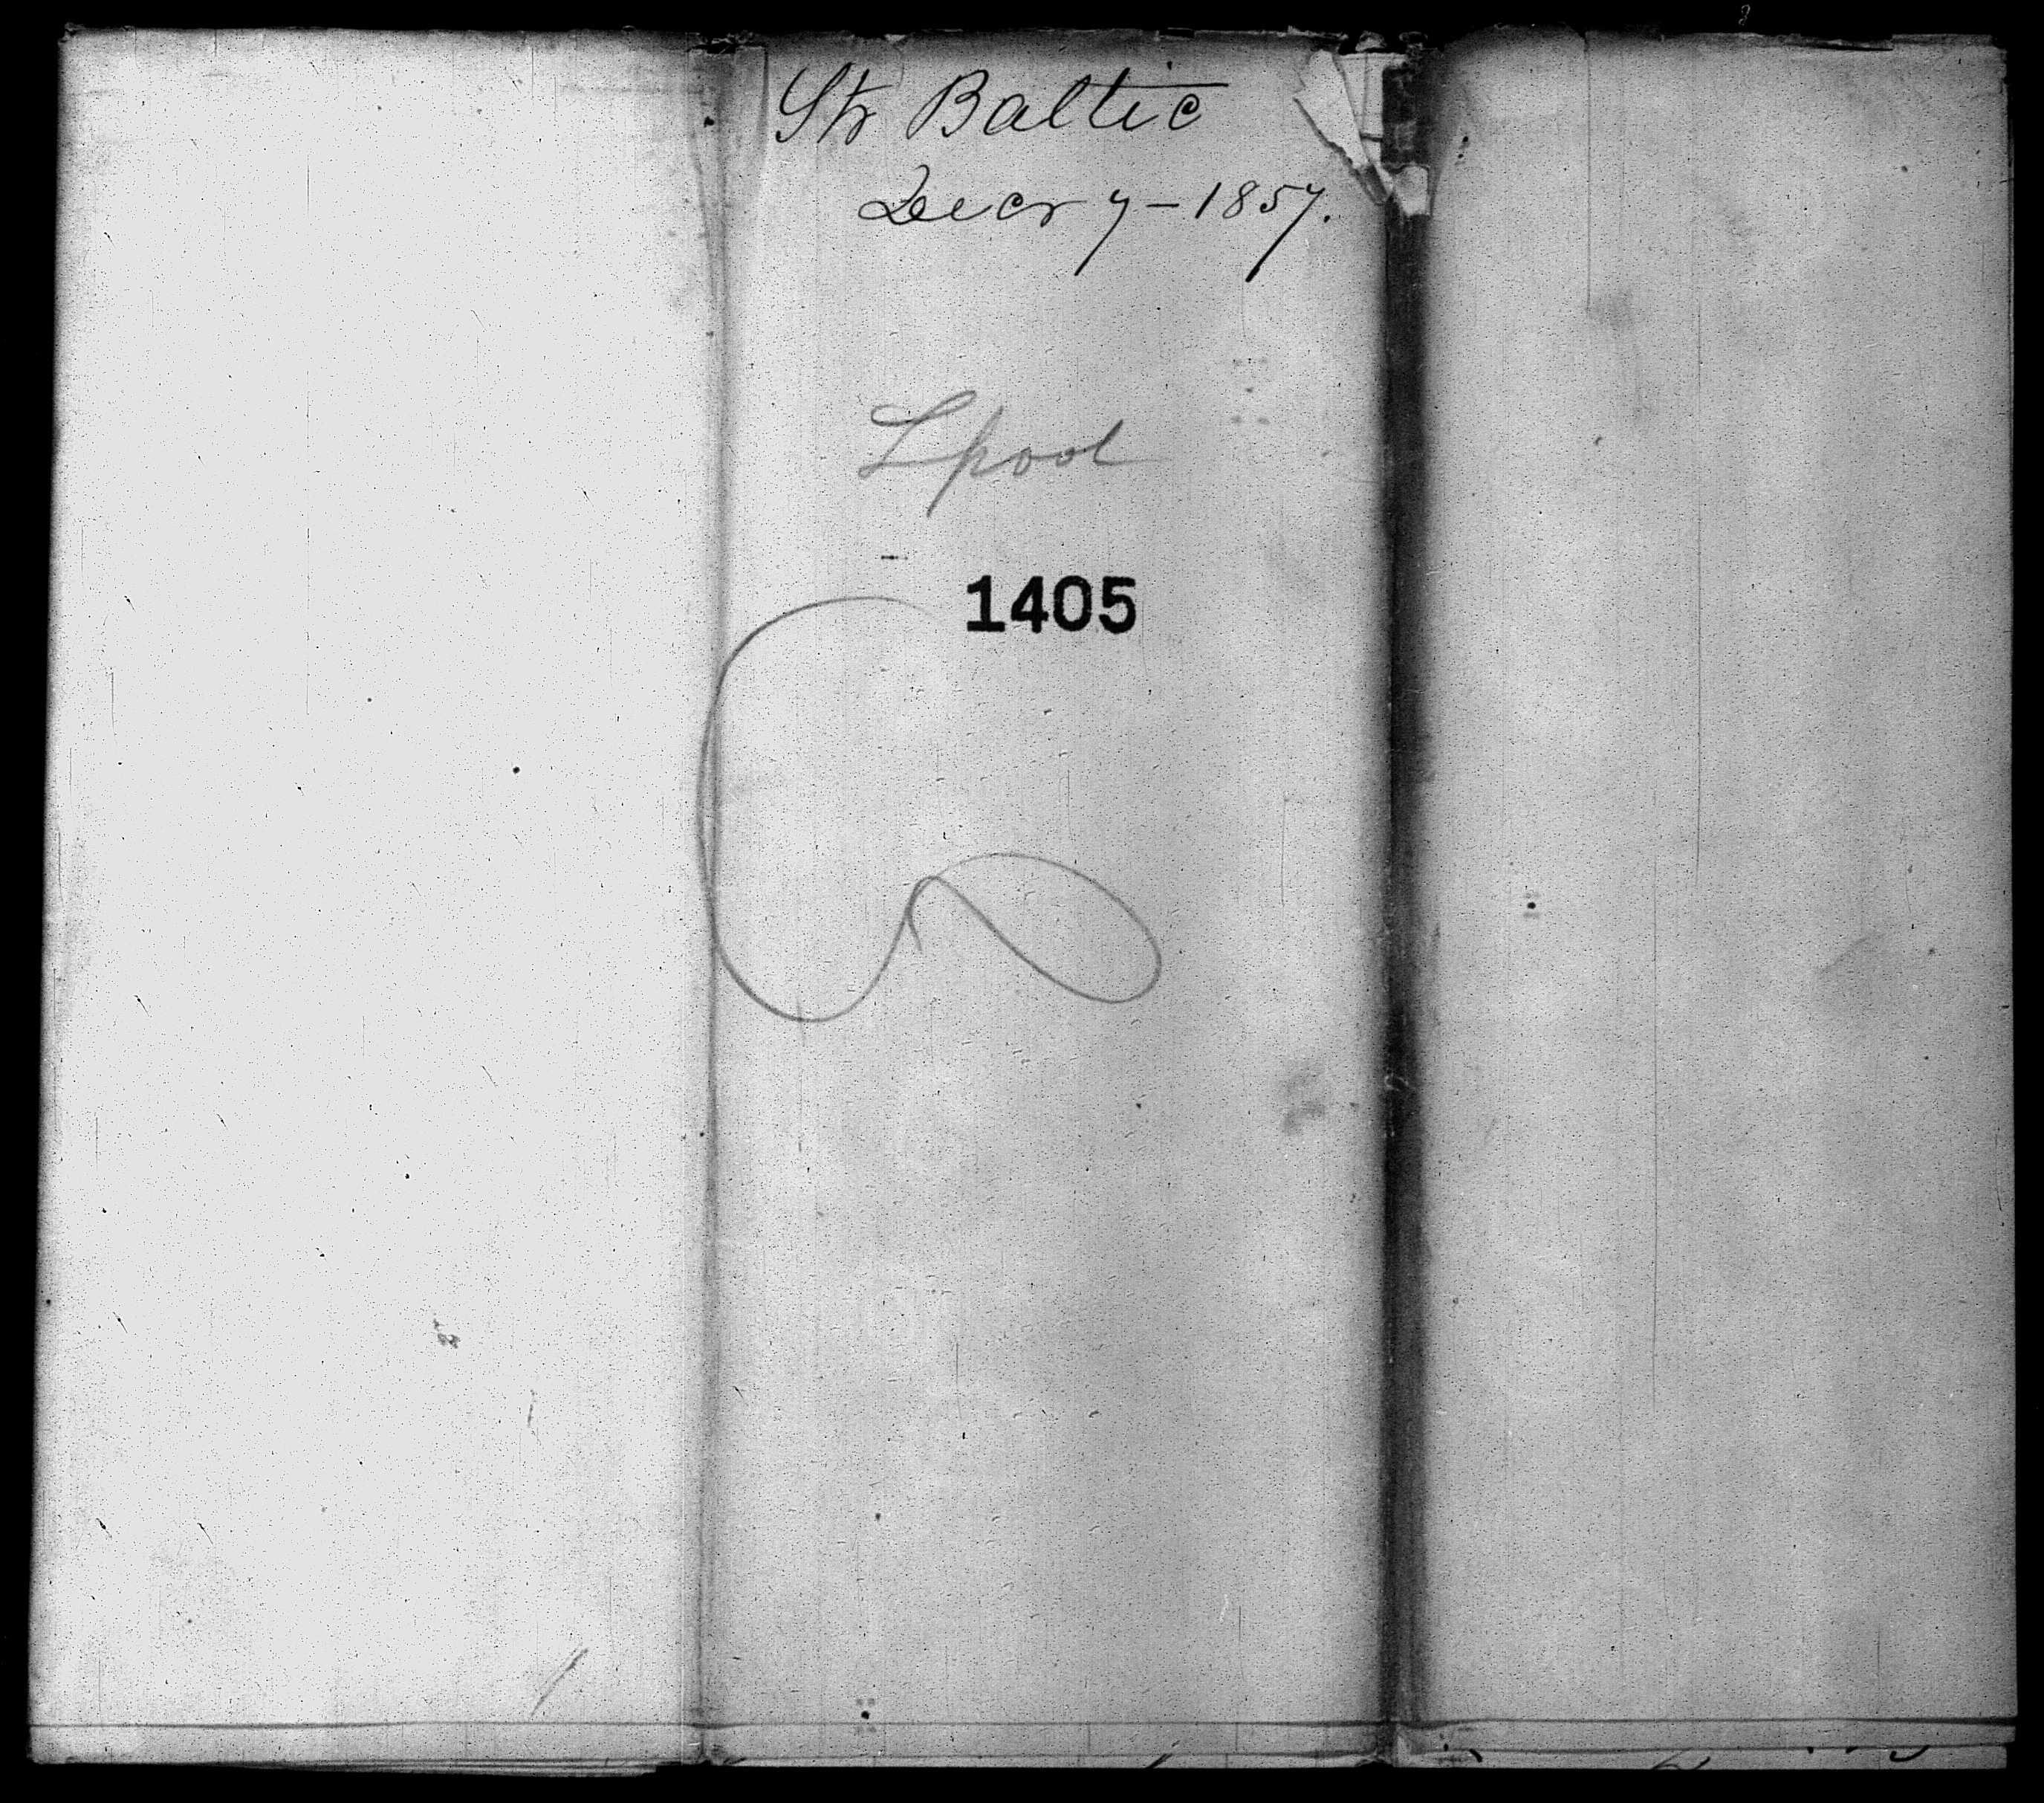 Str Baltic
Decr 7 - 1857.
Lpool
1405